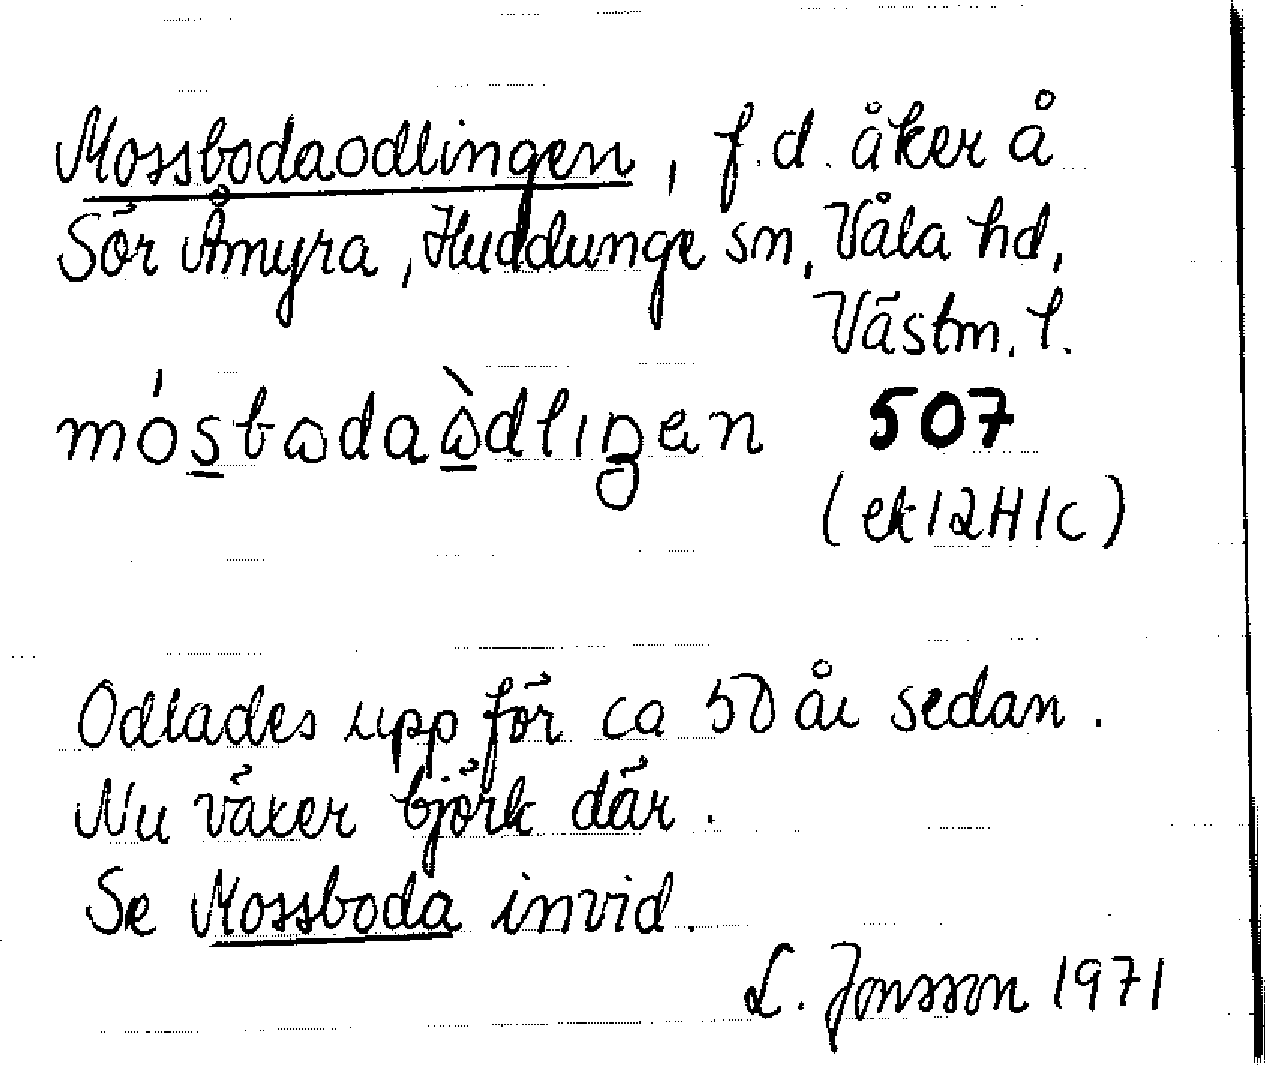 Mossbodaodlingen, f.d. åker å
Sör Åmyra, Huddunge sn, Våla hd,
Västm. l.
mósbωdaὼdlıŋen 507
(ek 12H1c)
Odlades upp för ca 50 år sedan.
Nu växer björk där.
Se Mossboda invid.
L. Jonsson 1971